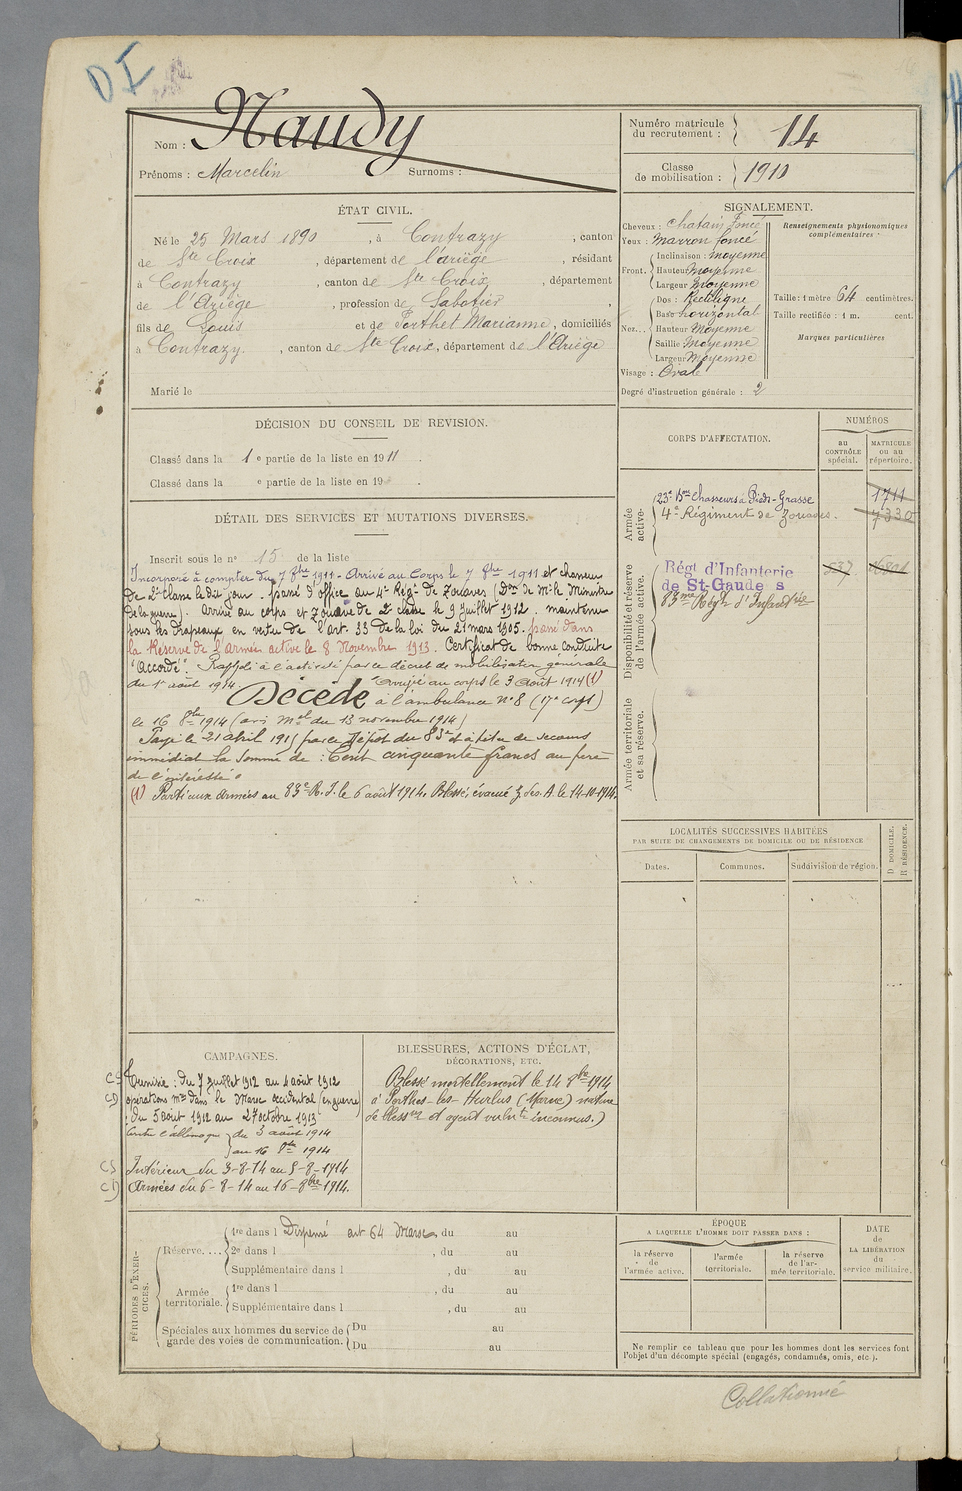 DI
Nom : Naudy
Prénoms : Marcelin Surnoms :
Numéro matricule du recrutement : 14
Classe de mobilisation : 1910
ÉTAT CIVIL.
Né le 25 Mars 1890, à Contrazy, canton
de Ste Croix, département de l'ariège, résidant
à Contrazy, canton de Ste Croix, département
de l'Ariège, profession de Sabotier,
fils de Louis et de Porthet Marianne, domiciliés
à Contrazy, canton de Ste Croix, département de l'Ariège
Marié le
SIGNALEMENT.
Cheveux : chatain Foncé
Yeux : Marron foncé
Front. Inclinaison : moyenne
Hauteur Moyenne
Largeur Moyenne
Nez... Dos : Rectiligne
Base horizontal
Hauteur Moyenne
Saillie Moyenne
Largeur Moyenne
Visage : Oval
Degré d'instruction générale : 2
Renseignements physionomiques complémentaires :
Taille : 1 mètre 64 centimètres.
Taille rectifiée : 1 m. cent.
Marques particulières
DÉCISION DU CONSEIL DE REVISION.
Classé dans la 1e partie de la liste en 1911.
Classé dans la e partie de la liste en 19
DÉTAIL DES SERVICES ET MUTATIONS DIVERSES.
Inscrit sous le n° 15 de la liste
Incorporé à compter du 7 8bre 1911 - Arrivé au Corps le 7 8bre 1911 et chasseur
de 2e Classe le dit jour. passé d'office au 4e Régt de Zouaves (Don de Mr le Ministre
de la guerre). Arrivé au corps et Zouave de 2e classe le 9 juillet 1912. maintenu
sous les drapeaux en vertu de l'art. 33 de la loi du 21 mars 1905. passé dans
la Réserve de l'Armée active le 8 Novembre 1913. Certificat de bonne conduite
"accordé". Rappelé à l'activité par le décret de mobilisation générale
du 1er août 1914. Arrivé au corps le 3 Août 1914 (1)
Décédé à l'ambulance n° 8 (17e corps)
le 16 8bre 1914 (avis mel du 13 novembre 1914)
Payé le 21 abril 1915 par le Dépôt du 83e et à titre de secours
immédiat la somme de : Cent cinquante francs au père
de l'intéressé.
(1) Parti aux Armées au 83e R. I. le 6 août 1914. Blessé, évacué Z des A. le 14-10-1914.
CORPS D'AFFECTATION.
NUMÉROS
au CONTRÔLE spécial.
MATRICULE ou au répertoire.
Armée active.
23e Bon Chasseurs à Pieds - Grasse 1711
4e Régiment de Zouaves. 7330
Disponibilité et réserve de l'armée active.
Régt d'Infanterie
de St-Gaudens
83me Régt d'Infanterie
Armée territoriale et sa réserve.
LOCALITÉS SUCCESSIVES HABITÉES
PAR SUITE DE CHANGEMENTS DE DOMICILE OU DE RÉSIDENCE
Dates.
Communes.
Suddivision de région.
D DOMICILE.
R RÉSIDENCE.
CAMPAGNES.
CS Tunisie : du 7 juillet 1912 au 4 août 1912
CD opérations mres dans le Maroc occidental (en guerre)
du 5 août 1912 au 27 octobre 1913
Contre l'allemagne du 3 août 1914
au 16 8bre 1914
CS Intérieur du 3-8-14 au 5-8-1914
CD Armées du 6-8-14 au 16-8bre 1914.
BLESSURES, ACTIONS D'ÉCLAT,
DÉCORATIONS, ETC.
Blessé mortellement le 14 8bre 1914
à Perthes-les-Hurlus (Marne) nature
de blessres et agent vulnt inconnus.)
PÉRIODES D'EXERCICES.
Réserve.... 1re dans l Dispensé art 64 Marse, du au
2e dans l , du au
Supplémentaire dans l , du au
Armée territoriale. 1re dans l , du au
Supplémentaire dans l , du au
Spéciales aux hommes du service de garde des voies de communication. Du au
Du au
ÉPOQUE
A LAQUELLE L'HOMME DOIT PASSER DANS :
la réserve de l'armée active.
l'armée territoriale.
la réserve de l'armée territoriale.
DATE de LA LIBÉRATION du service militaire.
Ne remplir ce tableau que pour les hommes dont les services font
l'objet d'un décompte spécial (engagés, condamnés, omis, etc.).
Collationné